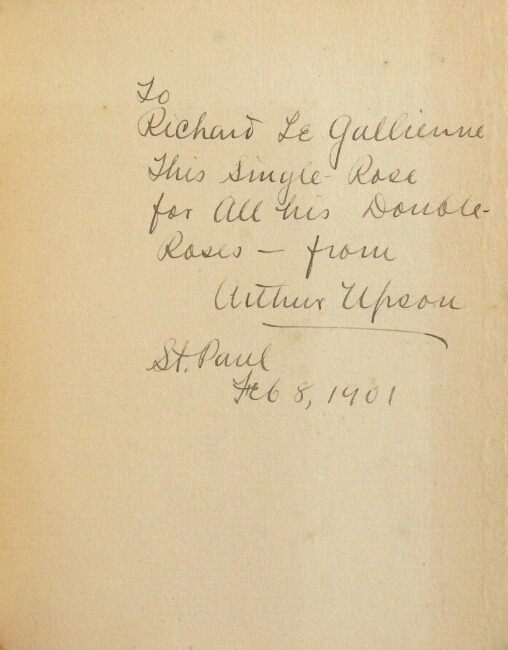 To
Richard Le Gallienne
This Single-Rose
for All his Double-
Roses — from
Arthur Upson
St. Paul
Feb 8, 1901